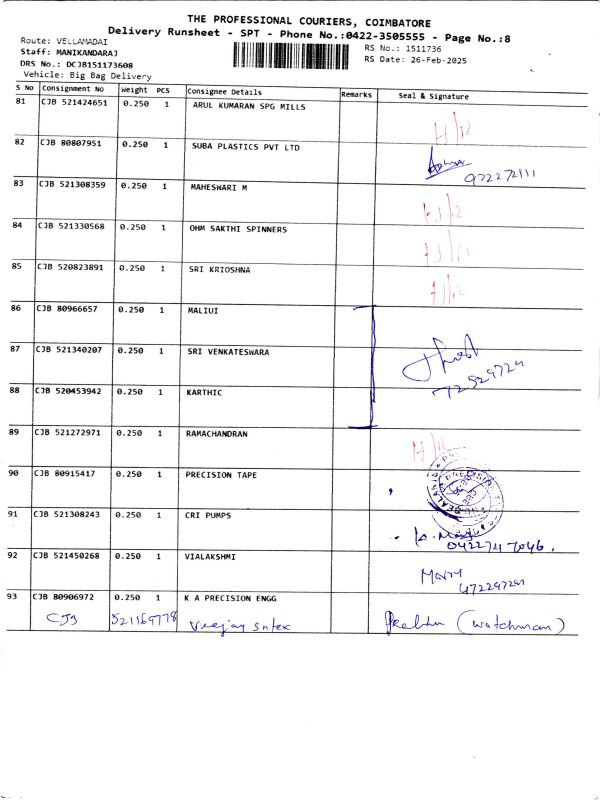 THE PROFESSIONAL COURIERS, COIMBATORE
Delivery Runsheet - SPT - Phone No.:0422-3505555 - Page No.:8
Route: VELLAMADAI
RS No.: 1511736
Staff: MANIKANDARAJ
RS Date: 26-Feb-2025
DRS No.: DCJB151173608
Vehicle: Big Bag Delivery
S No Consignment No Weight PCS Consignee Details Remarks Seal & Signature
81 CJB 521424651 0.250 1 ARUL KUMARAN SPG MILLS
82 CJB 80807951 0.250 1 SUBA PLASTICS PVT LTD
83 CJB 521308359 0.250 1 MAHESWARI M
84 CJB 521330568 0.250 1 OHM SAKTHI SPINNERS
85 CJB 520823891 0.250 1 SRI KRIOSHNA
86 CJB 80966657 0.250 1 MALIUI
87 CJB 521340207 0.250 1 SRI VENKATESWARA
88 CJB 520453942 0.250 1 KARTHIC
89 CJB 521272971 0.250 1 RAMACHANDRAN
90 CJB 80915417 0.250 1 PRECISION TAPE
91 CJB 521308243 0.250 1 CRI PUMPS
92 CJB 521450268 0.250 1 VIALAKSHMI
93 CJB 80906972 0.250 1 K A PRECISION ENGG
CJB 521169778 (watchman)